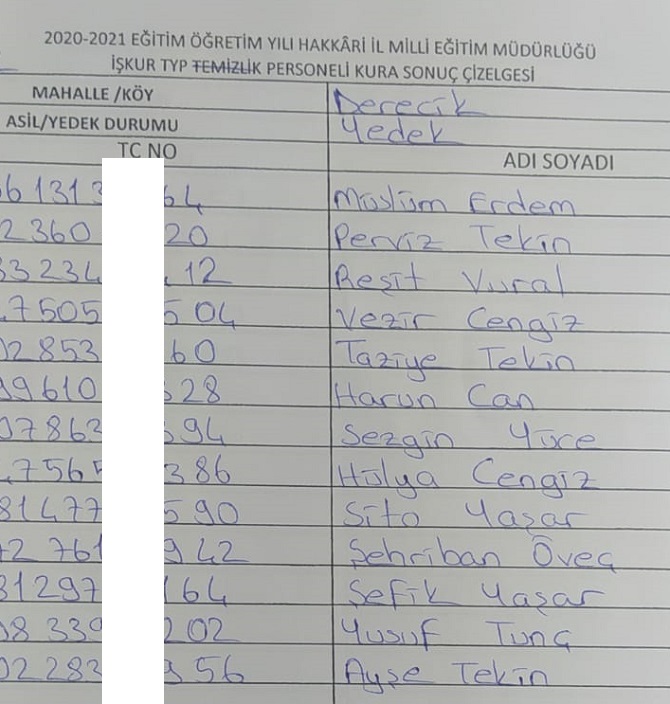 2020-2021 EĞİTİM ÖĞRETİM YILI HAKKÂRİ İL MİLLİ EĞİTİM MÜDÜRLÜĞÜ
İŞKUR TYP TEMİZLİK PERSONELİ KURA SONUÇ ÇİZELGESİ
MAHALLE /KÖY Derecik
ASİL/YEDEK DURUMU Yedek
TC NO ADI SOYADI
61313 64 Müslüm Erdem
2360 20 Perviz Tekin
33234 12 Reşit Vural
7505 504 Vezir Cengiz
02853 60 Taziye Tekin
99610 28 Harun Can
07863 94 Sezgin Yüce
7565 386 Hülya Cengiz
81477 590 Sito Yaşar
2761 942 Şehriban Öveç
31297 164 Şefik Yaşar
08339 202 Yusuf Tunç
02283 356 Ayşe Tekin